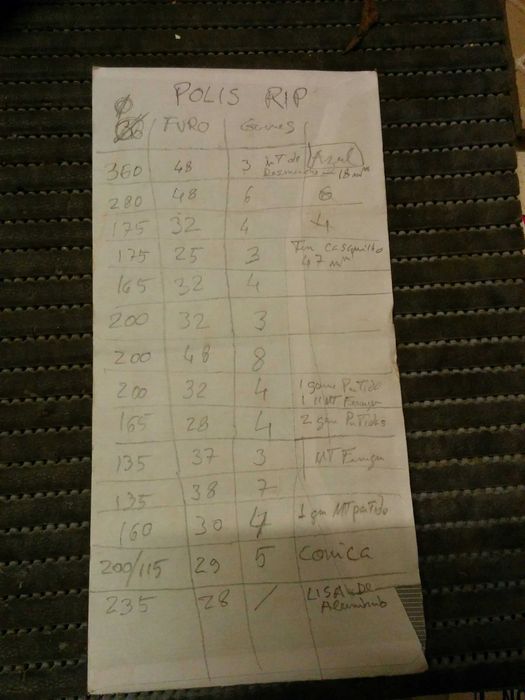 POLIS RIP
Ø FURO Gomes
360 48 3 MT de Azul
18 mm
280 48 6 6
175 32 4 4
175 25 3 Tem casquilho
47 mm
165 32 4
200 32 3
200 48 8
200 32 4 1 gome Partido
1 MT
165 28 4 2 gom Partidos
135 37 3 MT
135 38 7
160 30 4 1 gom MT partido
200/115 29 5 CONICA
235 28 / LISA De
Aluminio